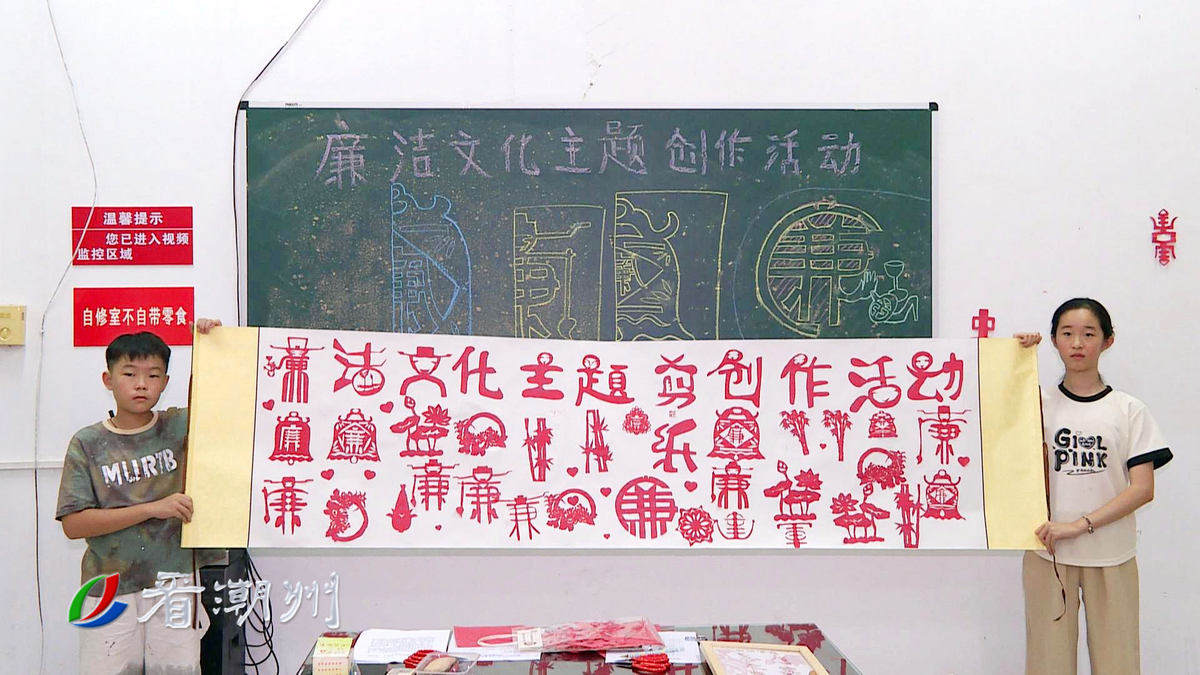 廉洁文化主题创作活动
温馨提示
您已进入视频
监控区域
自修室不自带零食
中
廉洁文化主题剪纸创作活动
廉
廉
廉
廉
廉
廉
廉
MURTB
GiOL
PINK
看潮州